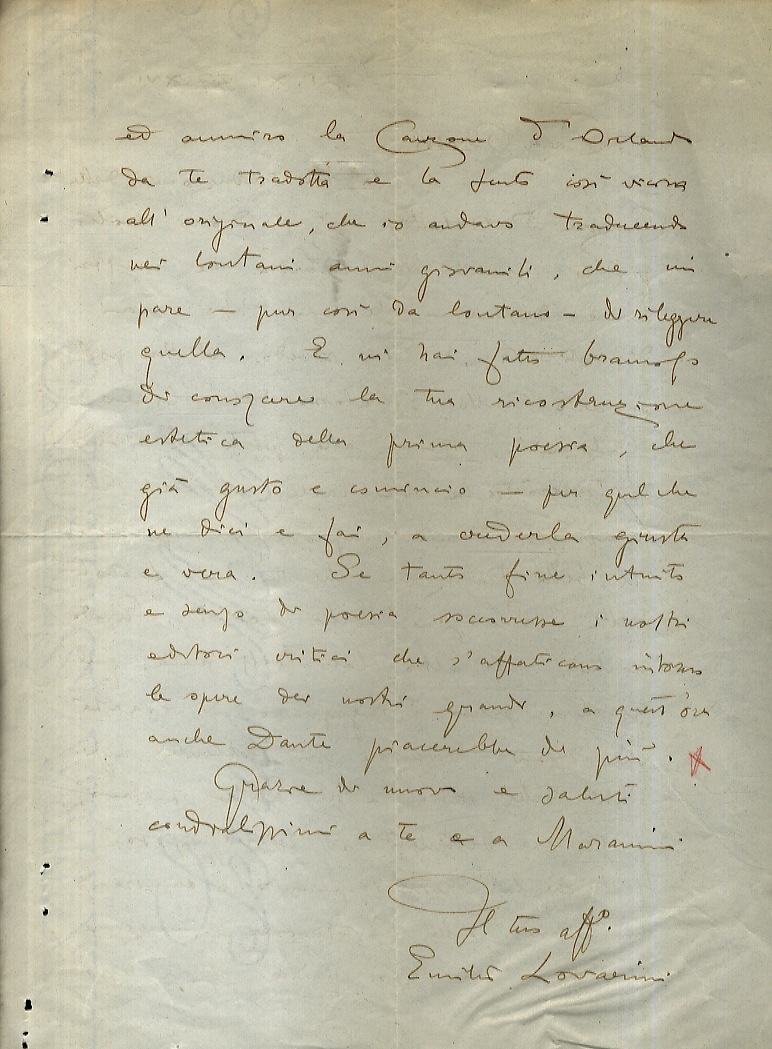 ed ammiro la Canzone d'Orlando
da te tradotta e la sento così vicina
all'originale, che io andavo traducendo
nei lontani anni giovanili, che mi
pare – pur così da lontano – di rileggere
quella. E mi hai fatto bramoso
di conoscere la tua ricostruzione
estetica della prima poesia, che
già gusto e comincio – per quel che
ne dici e fai, a crederla giusta
e vera. Se tanto fine intuito
e senso di poesia soccorresse i nostri
editori critici che s'affaticano intorno
le opere dei nostri grandi, a quest'ora
anche Dante piacerebbe di più.
Grazie di nuovo e saluti
cordialissimi a te e a Maranini
Il tuo aff.o
Emilio Lovarini